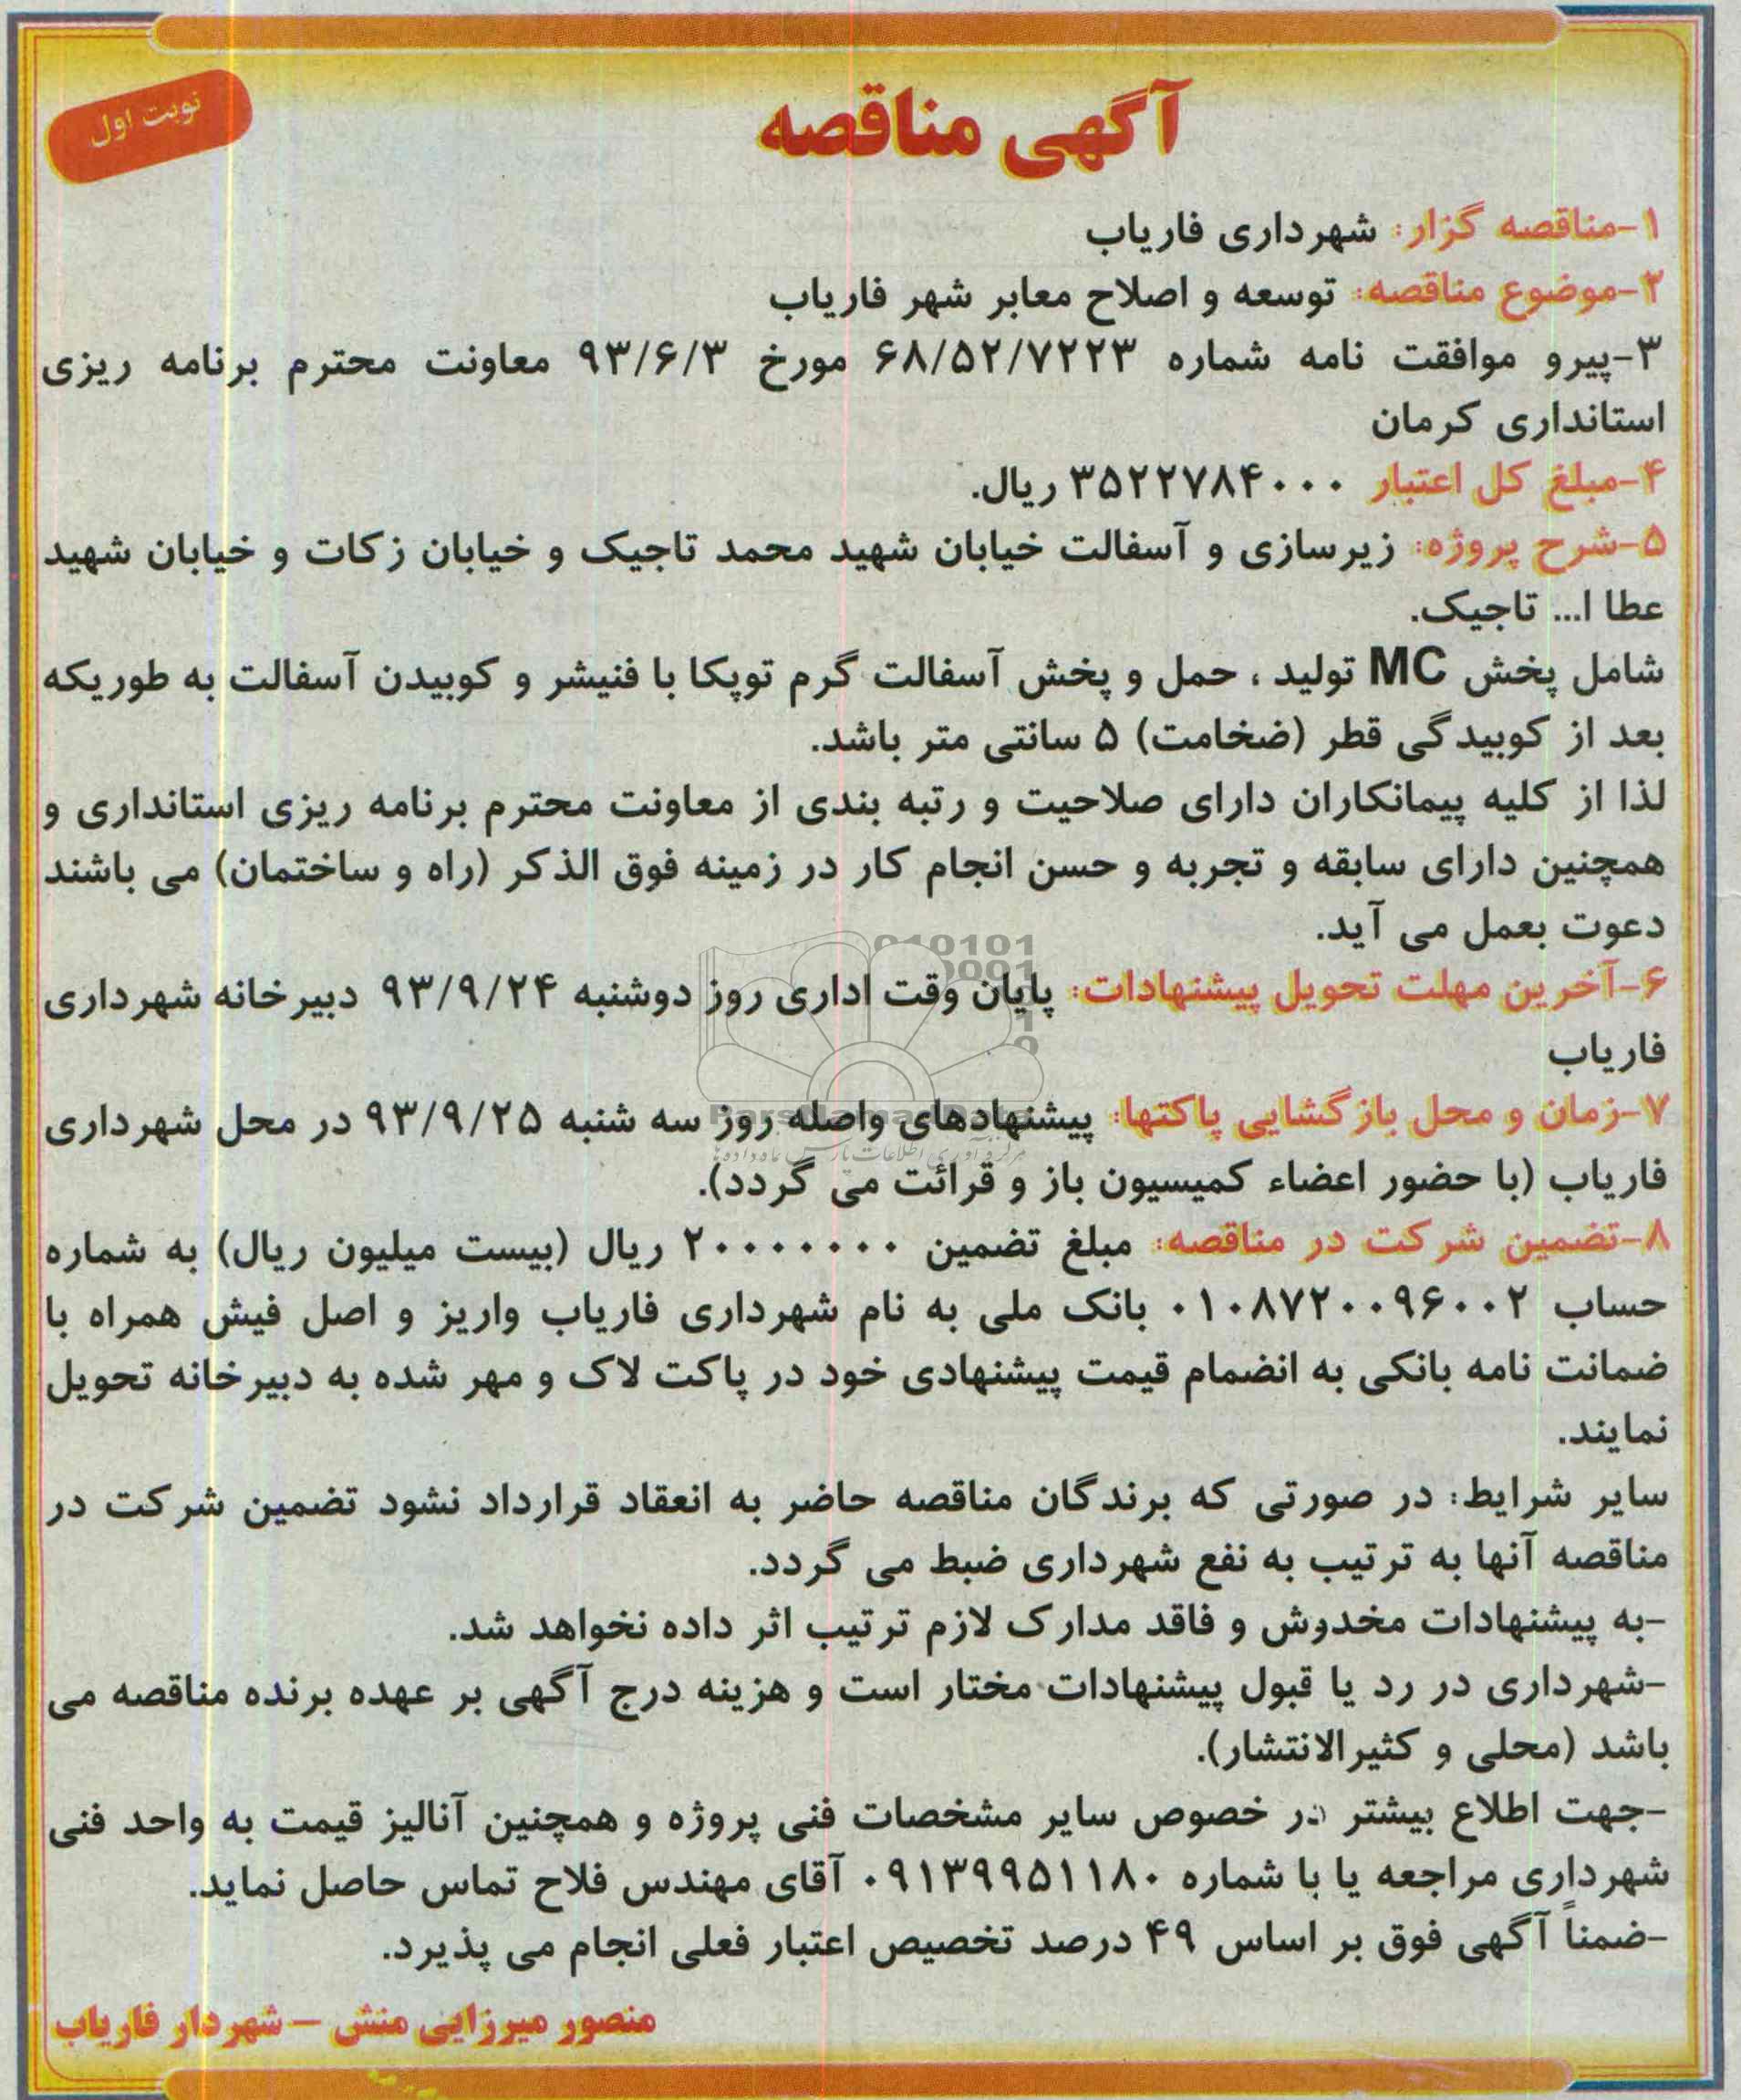 آگهی مناقصه
نوبت اول
۱-مناقصه گزار: شهرداری فاریاب
۲-موضوع مناقصه: توسعه و اصلاح معابر شهر فاریاب
۳-پیرو موافقت نامه شماره ۶۸/۵۲/۷۲۲۳ مورخ ۹۳/۶/۳ معاونت محترم برنامه ریزی
استانداری کرمان
۴-مبلغ کل اعتبار ۳۵۲۲۷۸۴۰۰۰ ریال.
۵-شرح پروژه: زیرسازی و آسفالت خیابان شهید محمد تاجیک و خیابان زکات و خیابان شهید
عطا ا... تاجیک.
شامل پخش MC تولید ، حمل و پخش آسفالت گرم توپکا با فنیشر و کوبیدن آسفالت به طوریکه
بعد از کوبیدگی قطر (ضخامت) ۵ سانتی متر باشد.
لذا از کلیه پیمانکاران دارای صلاحیت و رتبه بندی از معاونت محترم برنامه ریزی استانداری و
همچنین دارای سابقه و تجربه و حسن انجام کار در زمینه فوق الذکر (راه و ساختمان) می باشند
دعوت بعمل می آید.
۶-آخرین مهلت تحویل پیشنهادات: پایان وقت اداری روز دوشنبه ۹۳/۹/۲۴ دبیرخانه شهرداری
فاریاب
۷-زمان و محل بازگشایی پاکتها: پیشنهادهای واصله روز سه شنبه ۹۳/۹/۲۵ در محل شهرداری
فاریاب (با حضور اعضاء کمیسیون باز و قرائت می گردد).
۸-تضمین شرکت در مناقصه: مبلغ تضمین ۲۰۰۰۰۰۰۰ ریال (بیست میلیون ریال) به شماره
حساب ۰۱۰۸۷۲۰۰۹۶۰۰۲ بانک ملی به نام شهرداری فاریاب واریز و اصل فیش همراه با
ضمانت نامه بانکی به انضمام قیمت پیشنهادی خود در پاکت لاک و مهر شده به دبیرخانه تحویل
نمایند.
سایر شرایط: در صورتی که برندگان مناقصه حاضر به انعقاد قرارداد نشود تضمین شرکت در
مناقصه آنها به ترتیب به نفع شهرداری ضبط می گردد.
-به پیشنهادات مخدوش و فاقد مدارک لازم ترتیب اثر داده نخواهد شد.
-شهرداری در رد یا قبول پیشنهادات مختار است و هزینه درج آگهی بر عهده برنده مناقصه می
باشد (محلی و کثیرالانتشار).
-جهت اطلاع بیشتر در خصوص سایر مشخصات فنی پروژه و همچنین آنالیز قیمت به واحد فنی
شهرداری مراجعه یا با شماره ۰۹۱۳۹۹۵۱۱۸۰ آقای مهندس فلاح تماس حاصل نماید.
-ضمناً آگهی فوق بر اساس ۴۹ درصد تخصیص اعتبار فعلی انجام می پذیرد.
منصور میرزایی منش – شهردار فاریاب